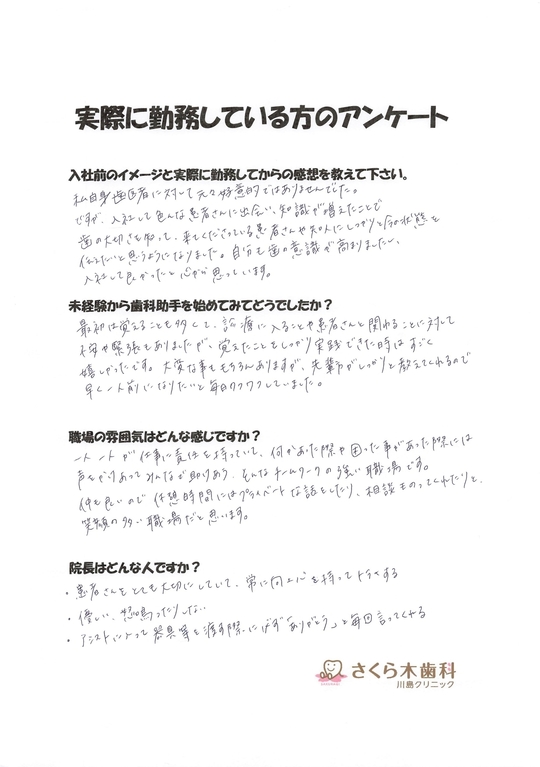 実際に勤務している方のアンケート
入社前のイメージと実際に勤務してからの感想を教えて下さい。
私自身歯医者に対して元々好意的ではありませんでした。
ですが、入社して色んな患者さんに出会い、知識が増えたことで
歯の大切さを知って、来てくださっている患者さんや知人にしっかりと今の状態を
伝えたいと思うようになりました。自分も歯の意識が高まりましたし、
入社して良かったと心から思っています。
未経験から歯科助手を始めてみてどうでしたか?
最初は覚えることも多くて、診療に入ることや患者さんと関わることに対して
不安や緊張もありましたが、覚えたことをしっかり実践できた時はすごく
嬉しかったです。大変な事ももちろんありますが、先輩方がしっかりと教えてくれるので
早く一人前になりたいと毎日ワクワクしていました。
職場の雰囲気はどんな感じですか?
一人一人が仕事に責任を持っていて、何かあった際や困った事があった際には
声をかけあってみんなで助けあう、そんなチームワークの強い職場です。
仲も良いので休憩時間にはプライベートな話をしたり、相談をのってくれたりと、
笑顔の多い職場だと思います。
院長はどんな人ですか?
・患者さんをとても大切にしていて、常に向上心を持って
・優しい、怒鳴ったりしない
・アシストに入って器具等を渡す際に必ず「ありがとう」と毎回言ってくれる
さくら木歯科
川島クリニック